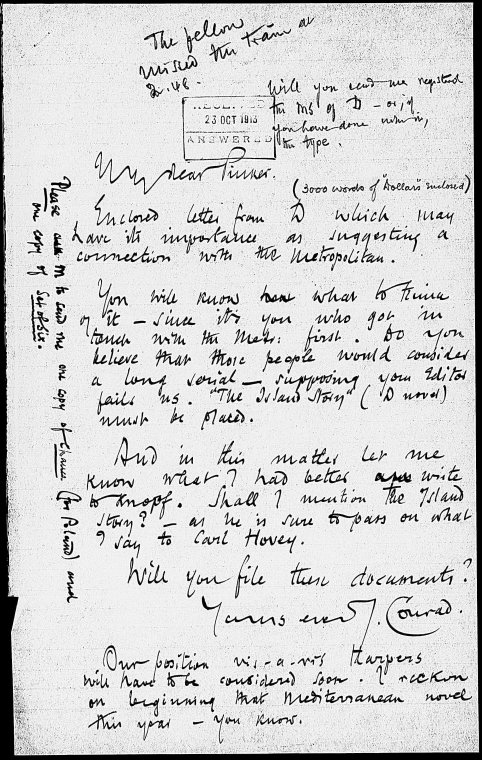 The fellow
missed the train at
2.48.
Will you send me registered
the MS of D – or, if
you have done with it,
the type.
RECEIVED
23 OCT 1913
ANSWERED
My dear Pinker.
(3000 words of "Dollars" enclosed)
Enclosed letter from D which may
have its importance as suggesting a
connection with the Metropolitan.
You will know what to think
of it – since it's you who got in
touch with the Metr: first. Do you
believe that those people would consider
a long serial – supposing your Editor
fails us. "The Island Story" (D novel)
must be placed.
And in this matter let me
know what I had better write
to Knopf. Shall I mention the Island
Story? – as he is sure to pass on what
I say to Carl Hovey.
Will you file these documents?
Yours ever J. Conrad.
Our position vis-a-vis Harpers
will have to be considered soon. I reckon
on beginning that Mediterranean novel
this year – you know.
Please ask M to send me one copy of Chance (for Poland) and
one copy of Set of Six.